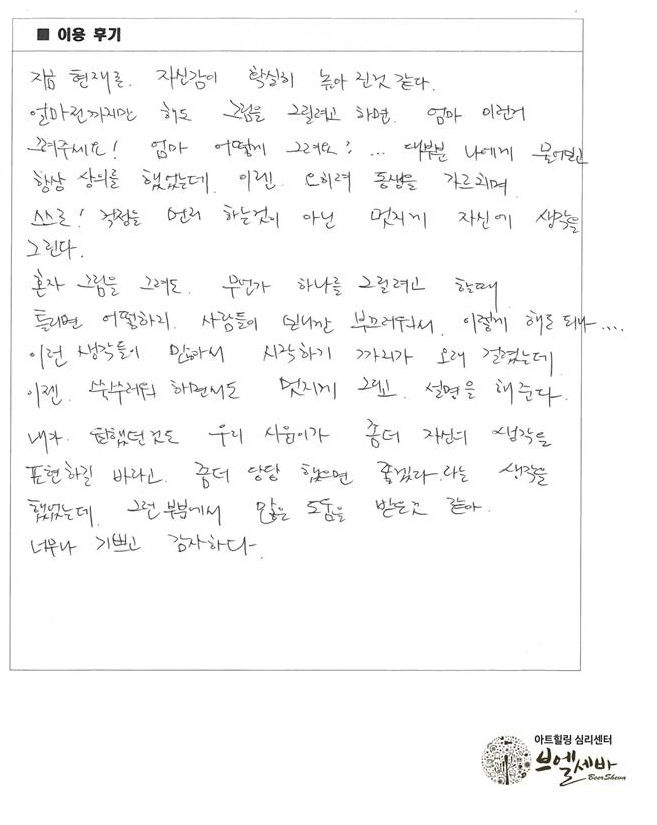 ■ 이용 후기
지금 현재를. 자신감이 확실히 높아 진것 같다.
얼마전까지만 해도 그림을 그릴려고 하면. 엄마 이런거
그려주세요! 엄마 어떻게 그려요? ... 대부분 나에게 물어보고
항상 상의를 했었는데. 이젠 오히려 동생을 가르치며
스스로! 걱정을 먼저 하는것이 아닌 멋지게 자신에 생각을
그린다.
혼자 그림을 그려도. 무언가 하나를 그릴려고 할때
틀리면 어떨하지. 사람들이 보니깐 부끄러워서. 이렇게 해도 되나....
이런 생각들이 많아서 시작하기 까지가 오래 걸렸는데
이젠. 쑥수러워 하면서도 멋지게 그리고. 설명을 해준다.
내가 원했던것도 우리 시윤이가 좀더 자신의 생각을
표현하길 바라고. 좀더 당당 했으면 좋겠다.라는 생각을
했었는데. 그런부분에서 많은 도움을 받은것 같아.
너무나 기쁘고 감사하다.
아트힐링 심리센터
브엘세바
BeerSheva